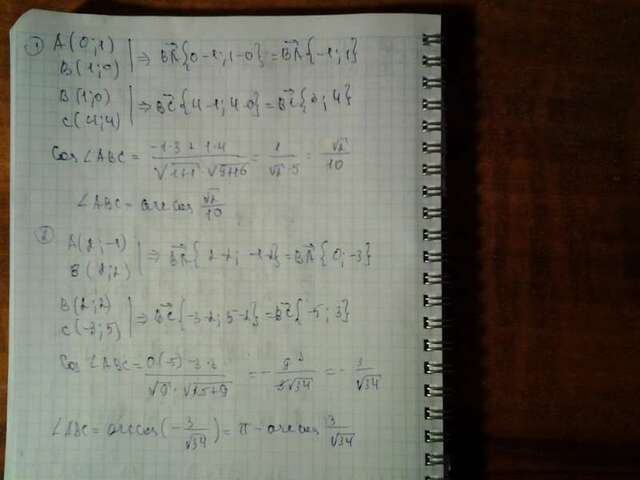 1) A(0;1)
B(1;0) | ⇒ BA{0-1;1-0}=BA{-1;1}
B(1;0) | ⇒ BC{4-1;4-0}=BC{3;4}
C(4;4)
Cos ∠ABC = (-1·3+1·4)/(√1+1·√9+16) = 1/(√2·5) = √2/10
∠ABC = arccos √2/10
2) A(2;-1)
B(2;2) | ⇒ BA{2-2; -1-2}=BA{0;-3}
B(2;2) | ⇒ BC{-3-2;5-2}=BC{-5;3}
C(-3;5)
Cos ∠ABC = (0(-5)-3·3)/(√9·√25+9) = -9/(3√34) = -3/√34
∠ABC = arccos(-3/√34) = π - arccos 3/√34